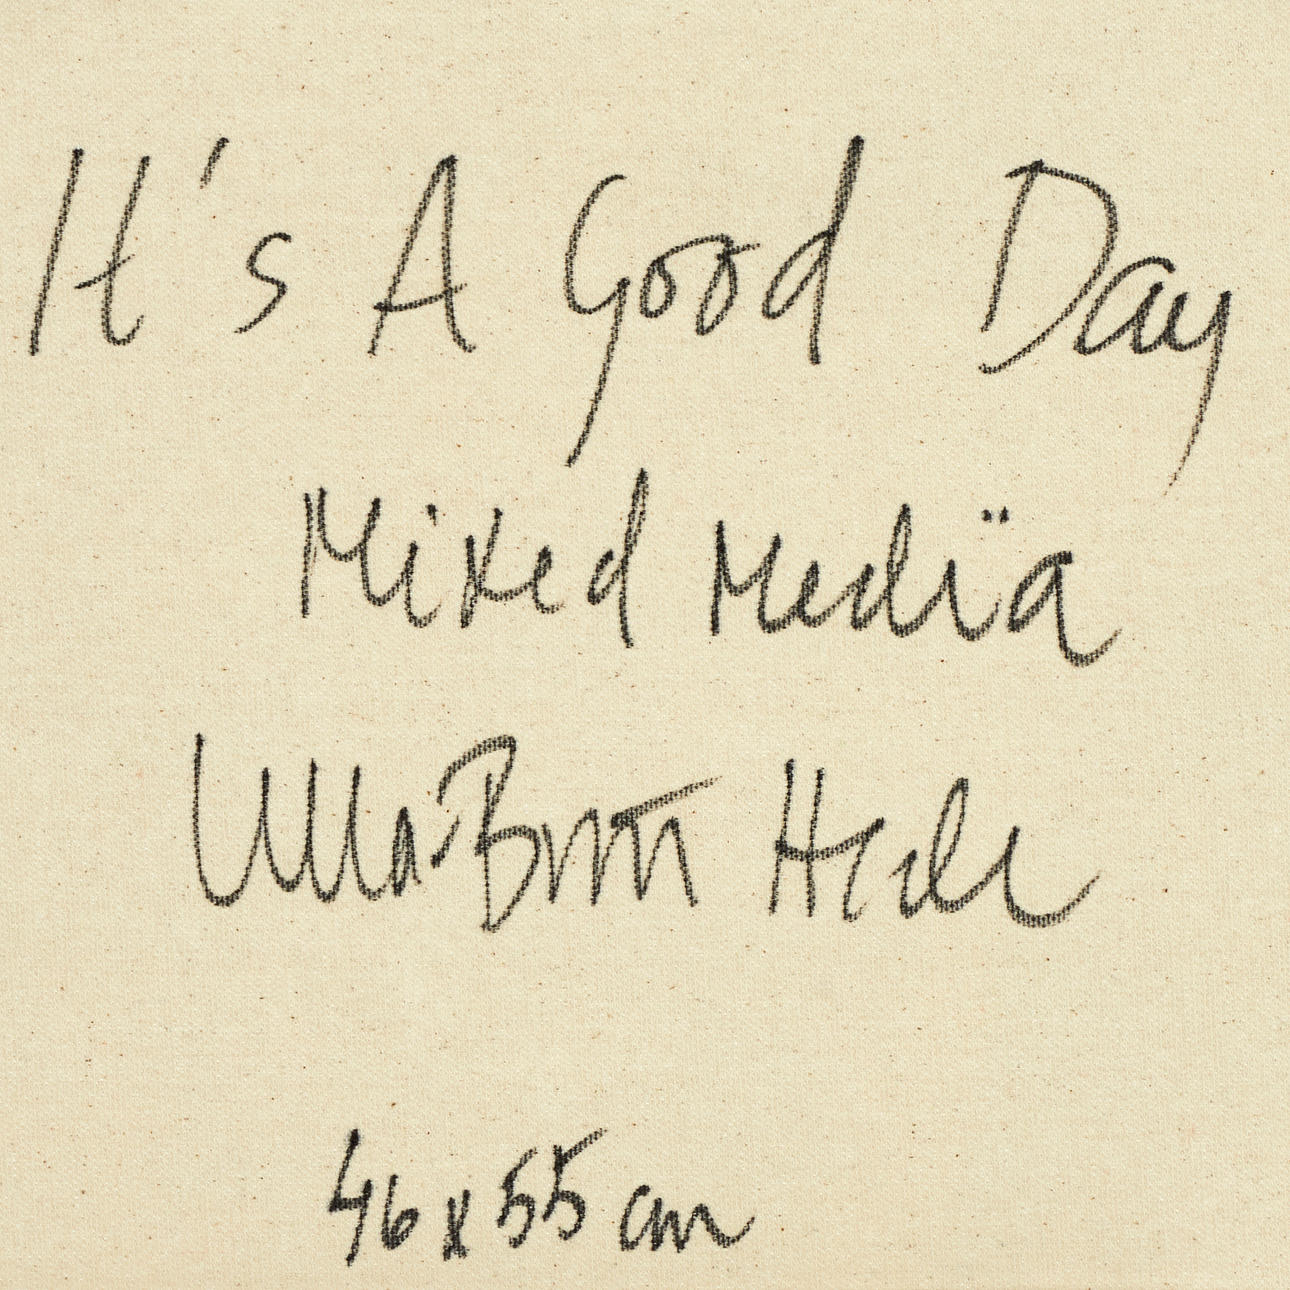 It's A Good Day
Mixed Media
Ulla-Britt
46x55 cm